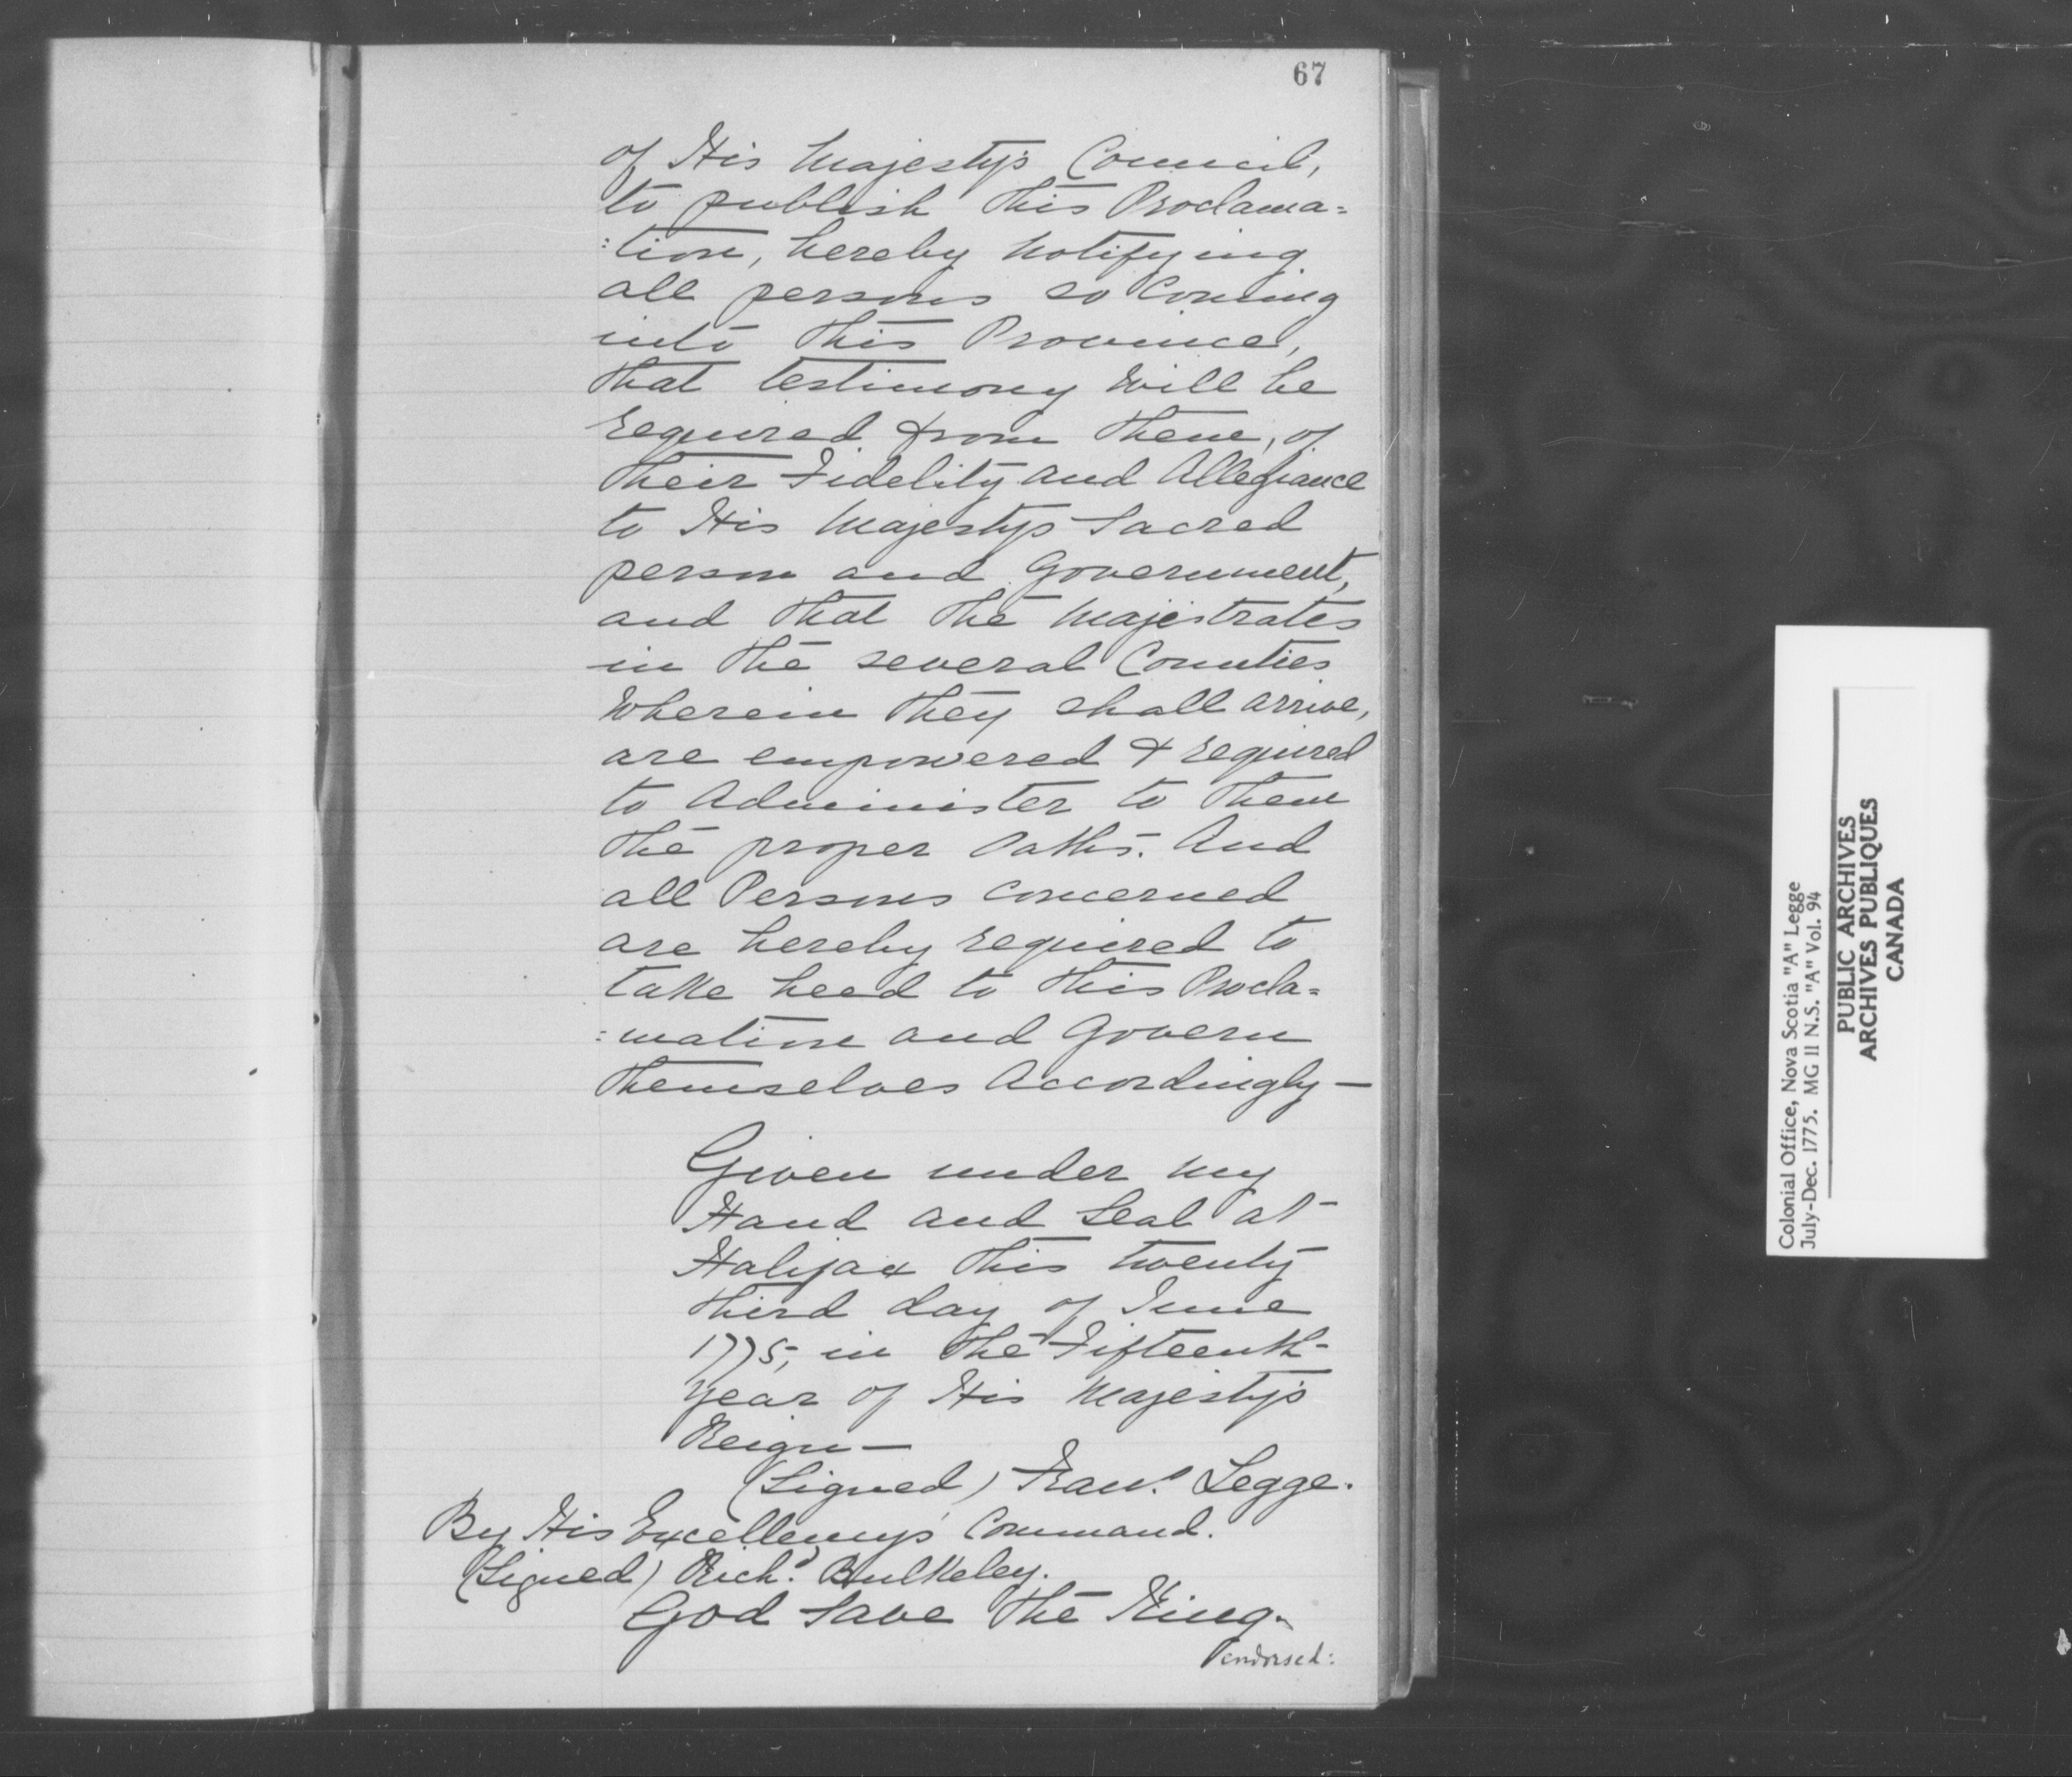 67
of His Majesty's Council,
to publish this Proclama=
:tion, hereby Notifying
all persons so Coming
into this Province,
that testimony Will be
required from them, of
their Fidelity and Allegiance
to His Majesty's Sacred
person and Government,
and that the Majestrates
in the several Counties
Wherein they shall arrive,
are empowered & required
to Administer to them
the proper Oaths. And
all Persons concerned
are hereby required to
take heed to this Procla=
:mation and Govern
themselves Accordingly—
Given under my
Hand and Seal at
Halifax this twenty
third day of June
1775, in the Fifteenth
year of His Majesty's
Reign—
(Signed) Frans. Legge.
By His Excellency's Command.
(Signed) Richd. Bulkeley.
God Save the King.
endorsed:
Colonial Office, Nova Scotia "A" Legge
July-Dec. 1775. MG 11 N.S. "A" Vol. 94
PUBLIC ARCHIVES
ARCHIVES PUBLIQUES
CANADA